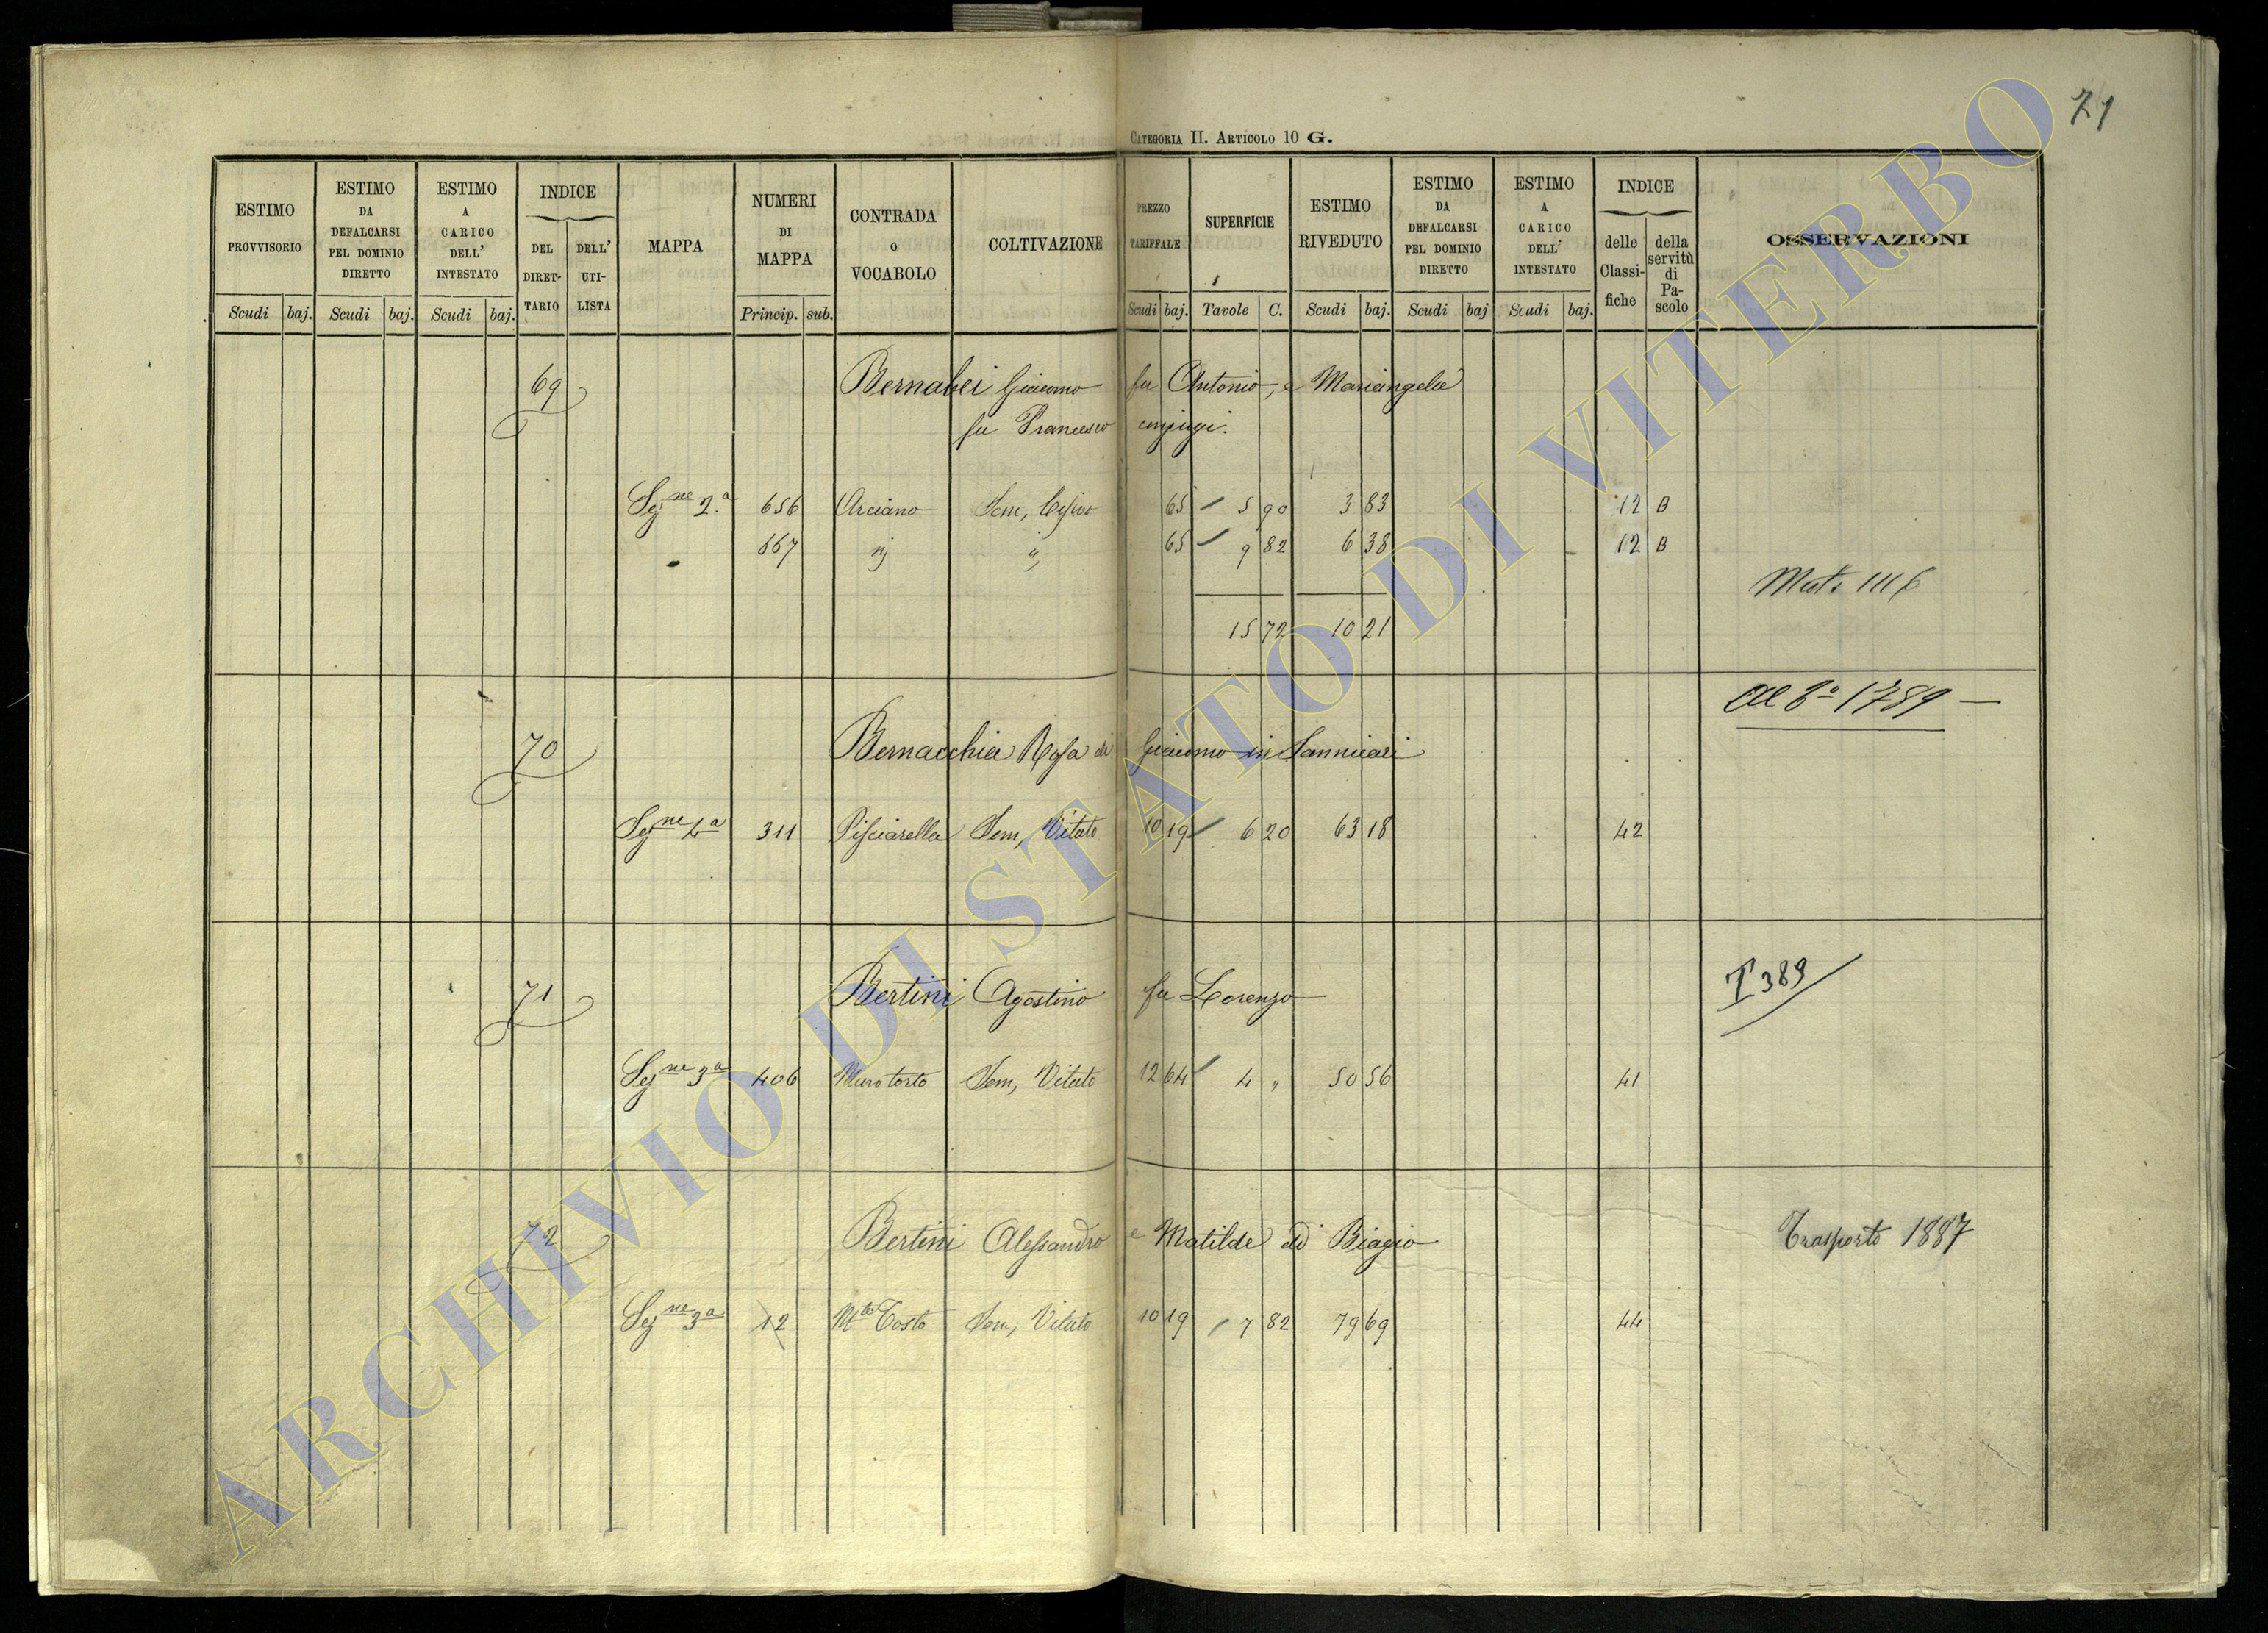 71
CATEGORIA II. ARTICOLO 10 G.
ESTIMO PROVVISORIO
ESTIMO DA DEFALCARSI PEL DOMINIO DIRETTO
ESTIMO A CARICO DELL' INTESTATO
INDICE
DEL DIRET-TARIO
DELL' UTI-LISTA
MAPPA
NUMERI DI MAPPA
CONTRADA O VOCABOLO
COLTIVAZIONE
PREZZO TARIFFALE
SUPERFICIE
ESTIMO RIVEDUTO
ESTIMO DA DEFALCARSI PEL DOMINIO DIRETTO
ESTIMO A CARICO DELL' INTESTATO
INDICE
delle Classi-fiche
della servitù di Pa-scolo
OSSERVAZIONI
Scudi baj. Scudi baj. Scudi baj. Princip. sub. Scudi baj. Tavole C. Scudi baj. Scudi baj Scudi baj.
69 Bernabei Giacomo fu Antonio, e Mariangela
fu Francesco conjugi.
Sez.ne 2.a 656 Arciano Sem, 65 5 90 3 83 12 B
667 " " 65 9 82 6 38 12 B
Mut. 1116
15 72 10 21
al 1789
70 Bernacchia Rosa di Giacomo in Sannicari
Sez.ne 4a 311 Pisciarella Sem, Vitato 10 19 6 20 63 18 42
71 Bertini Agostino fu Lorenzo
T 389
Sez.ne 3a 406 Muro torto Sem, Vitato 12 64 4 " 50 56 41
72 Bertini Alessandro e Matilde di Biagio
Trasporto 1887
Sez.ne 3a 12 M.te Tosto Sem, Vitato 10 19 7 82 79 69 44
ARCHIVIO DI STATO DI VITERBO